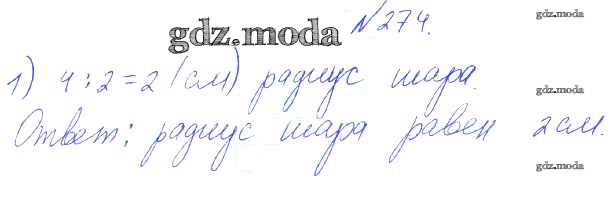 gdz.moda №274. gdz.moda
1) 4:2=2 (см) радиус шара. gdz.moda
Ответ: радиус шара равен 2см.
gdz.moda